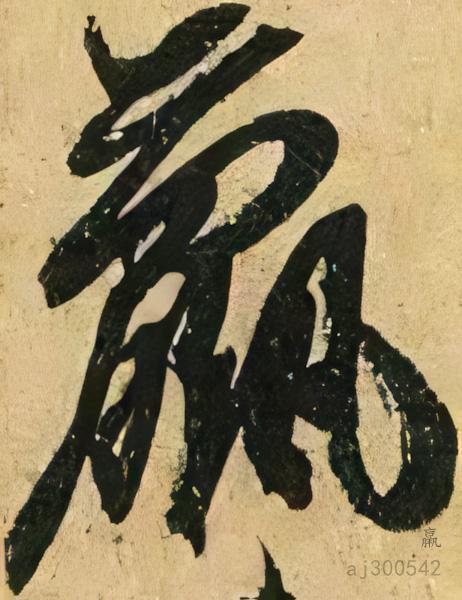 羸
羸
aj300542